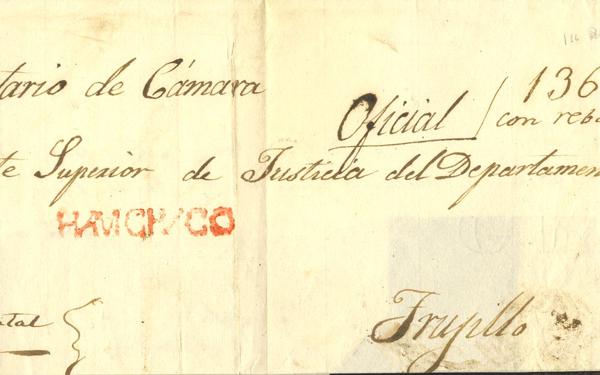 tario de Cámara
Oficial 136
con reb
te Superior de Justicia del Departamen
HAVICHVCO
tal
Trujillo